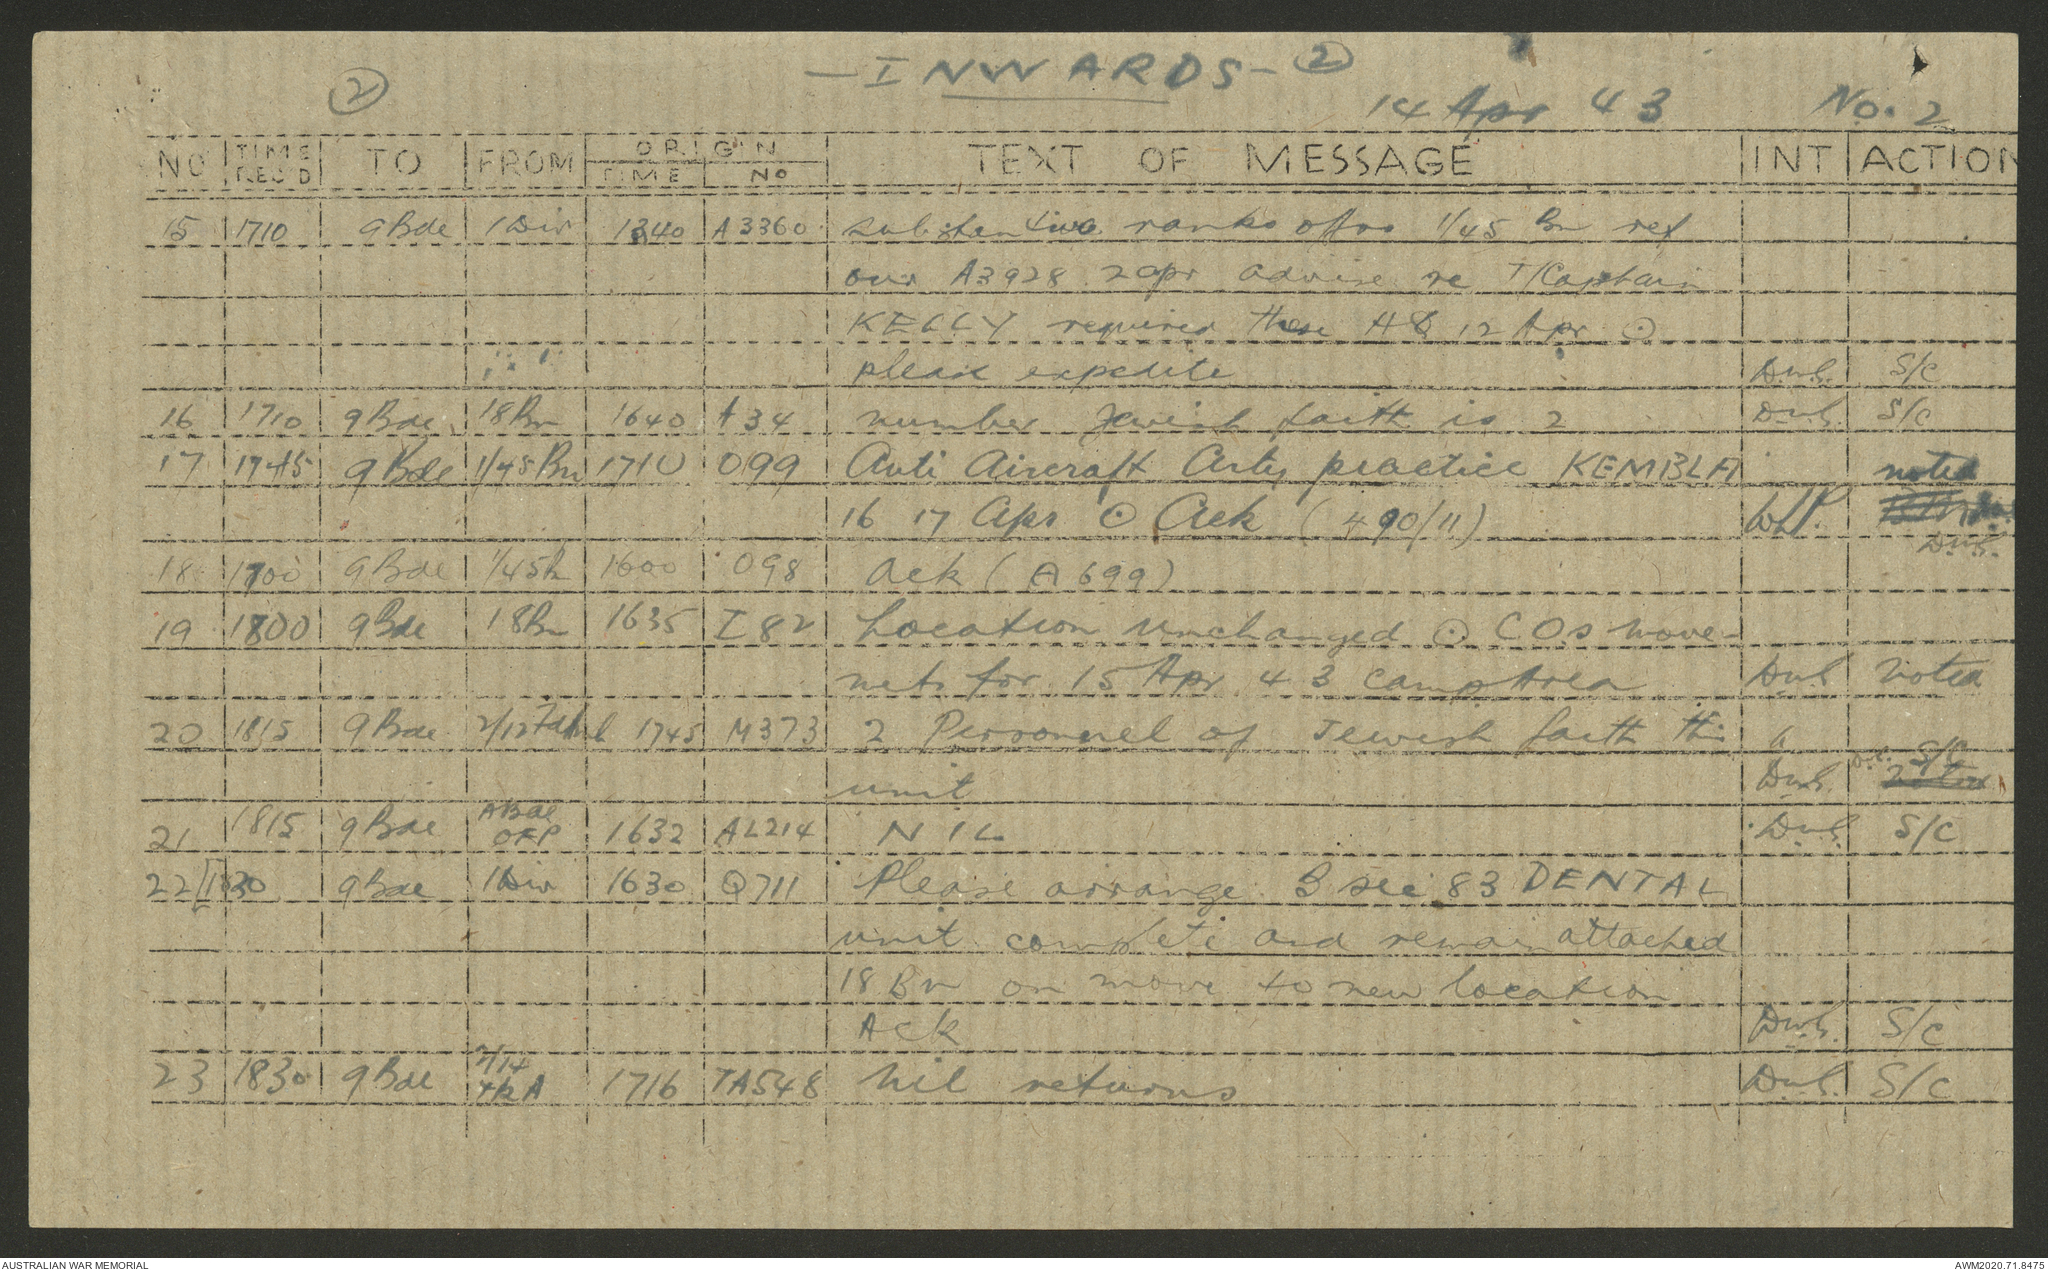 — INWARDS — 2
2
14 Apr 43 No. 2
NO TIME REC'D TO FROM ORIGIN TIME NO TEXT OF MESSAGE INT ACTION
15 1710 9Bde 1Div 1340 A3360 substantive ranks offrs 1/45 Bn ref
our A3928 2apr advise re T/Captain
KELLY required these HQ 12 Apr ⊙
please expedite D.w.S. S/C
16 1710 9Bde 18Bn 1640 A34 number Jewish faith is 2 D.w.S. S/C
17 1745 9Bde 1/45 Bn 1710 O99 Anti Aircraft Arty practice KEMBLA noted
16 17 Apr ⊙ Ack (490/11) WP.
D.w.S.
18 1700 9Bde 1/45B 1600 O98 Ack (A699)
19 1800 9Bde 18Bn 1635 I82 Location unchanged ⊙ COs move-
nets for 15 Apr 43 camp Area DwS Noted
20 1815 9Bde 2/12 1745 M373 2 Personnel of Jewish faith this
unit DwS. S/C noted
21 1815 9Bde ABde OFP 1632 AL214 NIL DwS. S/C
22 1830 9Bde 1Div 1630 Q711 Please arrange B sec 83 DENTAL
unit complete and remain attached
18 Bn on move to new location
Ack DwS. S/C
23 1830 9Bde 2/14 1716 TA548 nil returns DwS. S/C
AUSTRALIAN WAR MEMORIAL AWM2020.71.8475